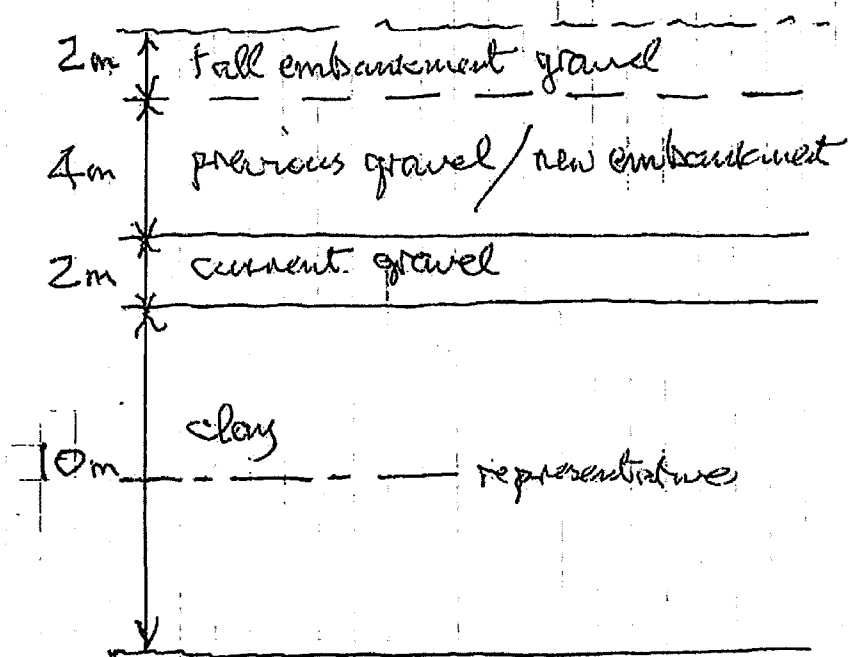 2m tall embankment gravel
4m previous gravel / new embankment
2m current gravel
clay
10m representative